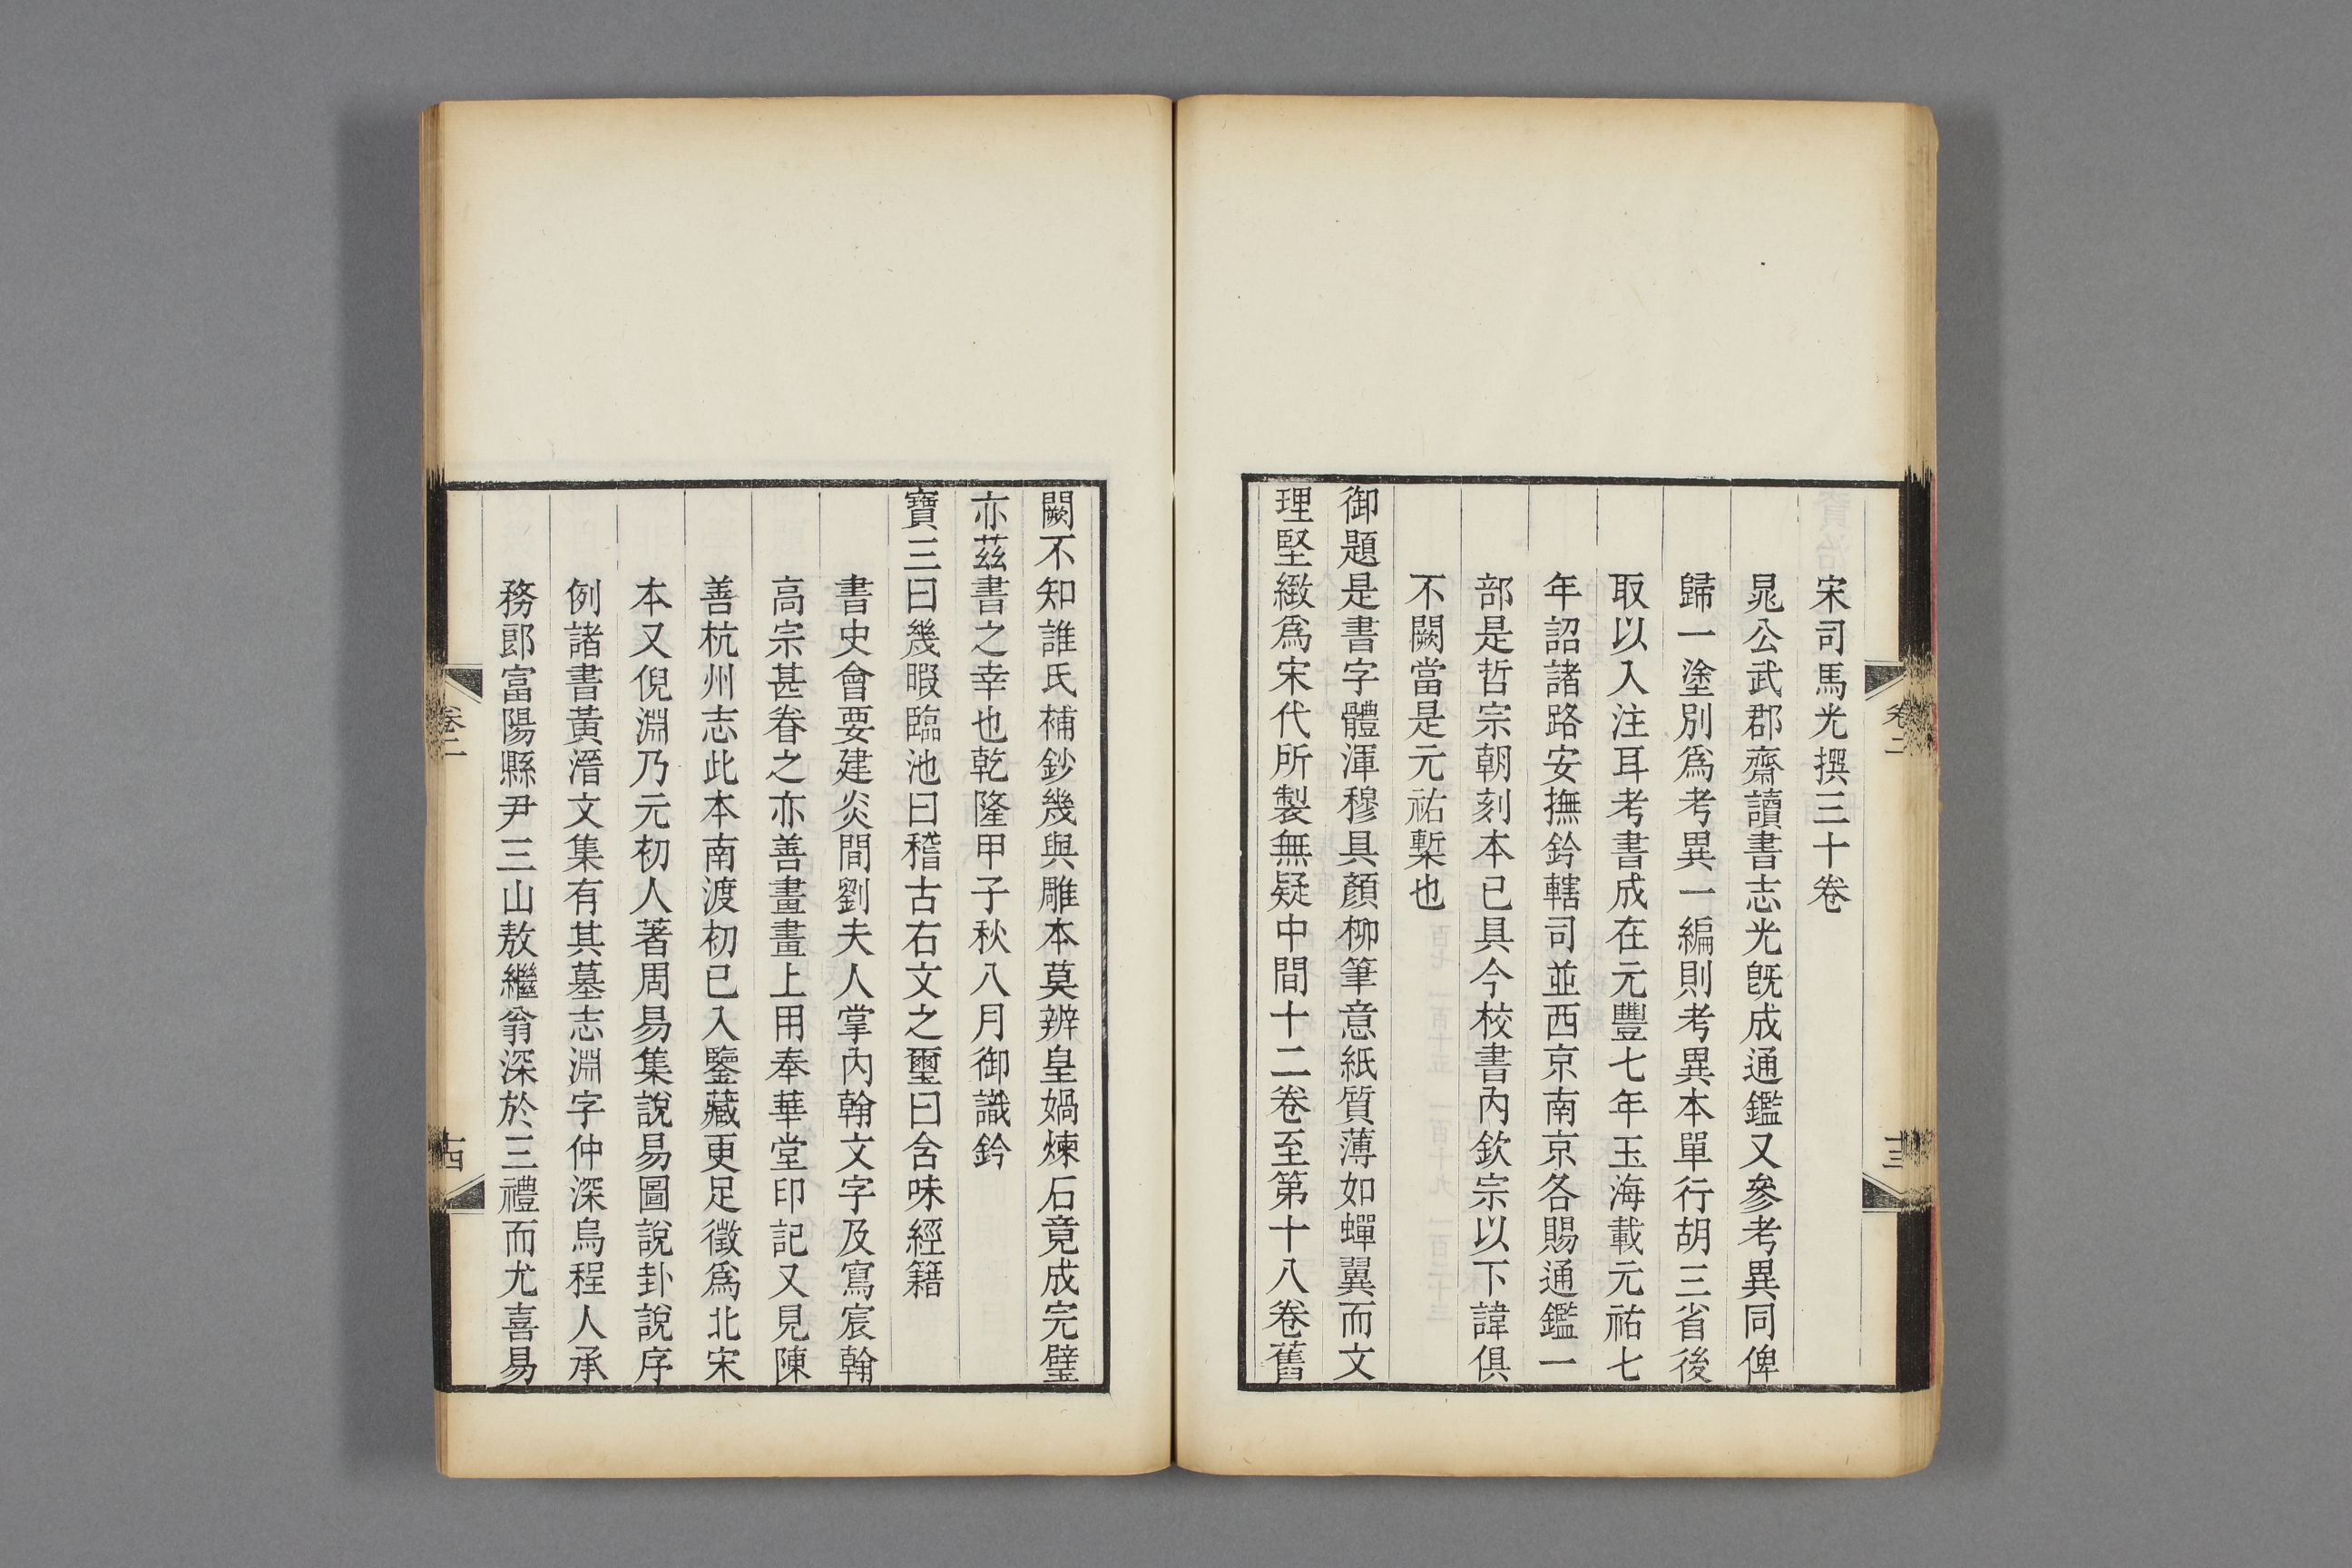 宋司馬光撰三十卷
晁公武郡齋讀書志光旣成通鑑又參考異同俾
歸一塗別爲考異一編則考異本單行胡三省後
取以入注耳考書成在元豐七年玉海載元祐七
年詔諸路安撫鈐轄司並西京南京各賜通鑑一
部是哲宗朝刻本已具今校書內欽宗以下諱俱
不闕當是元祐槧也
御題是書字體渾穆具顏柳筆意紙質薄如蟬翼而文
理堅緻爲宋代所製無疑中間十二卷至第十八卷舊
卷二
十三
闕不知誰氏補鈔幾與雕本莫辨皇媧煉石竟成完璧
亦茲書之幸也乾隆甲子秋八月御識鈐
寶三曰幾暇臨池曰稽古右文之璽曰含味經籍
書史會要建炎間劉夫人掌內翰文字及寫宸翰
高宗甚眷之亦善畫畫上用奉華堂印記又見陳
善杭州志此本南渡初已入鑒藏更足徵爲北宋
本又倪淵乃元初人著周易集說易圖說卦說序
例諸書黃溍文集有其墓志淵字仲深烏程人承
務郎富陽縣尹三山敖繼翁深於三禮而尤喜易
卷二
十四